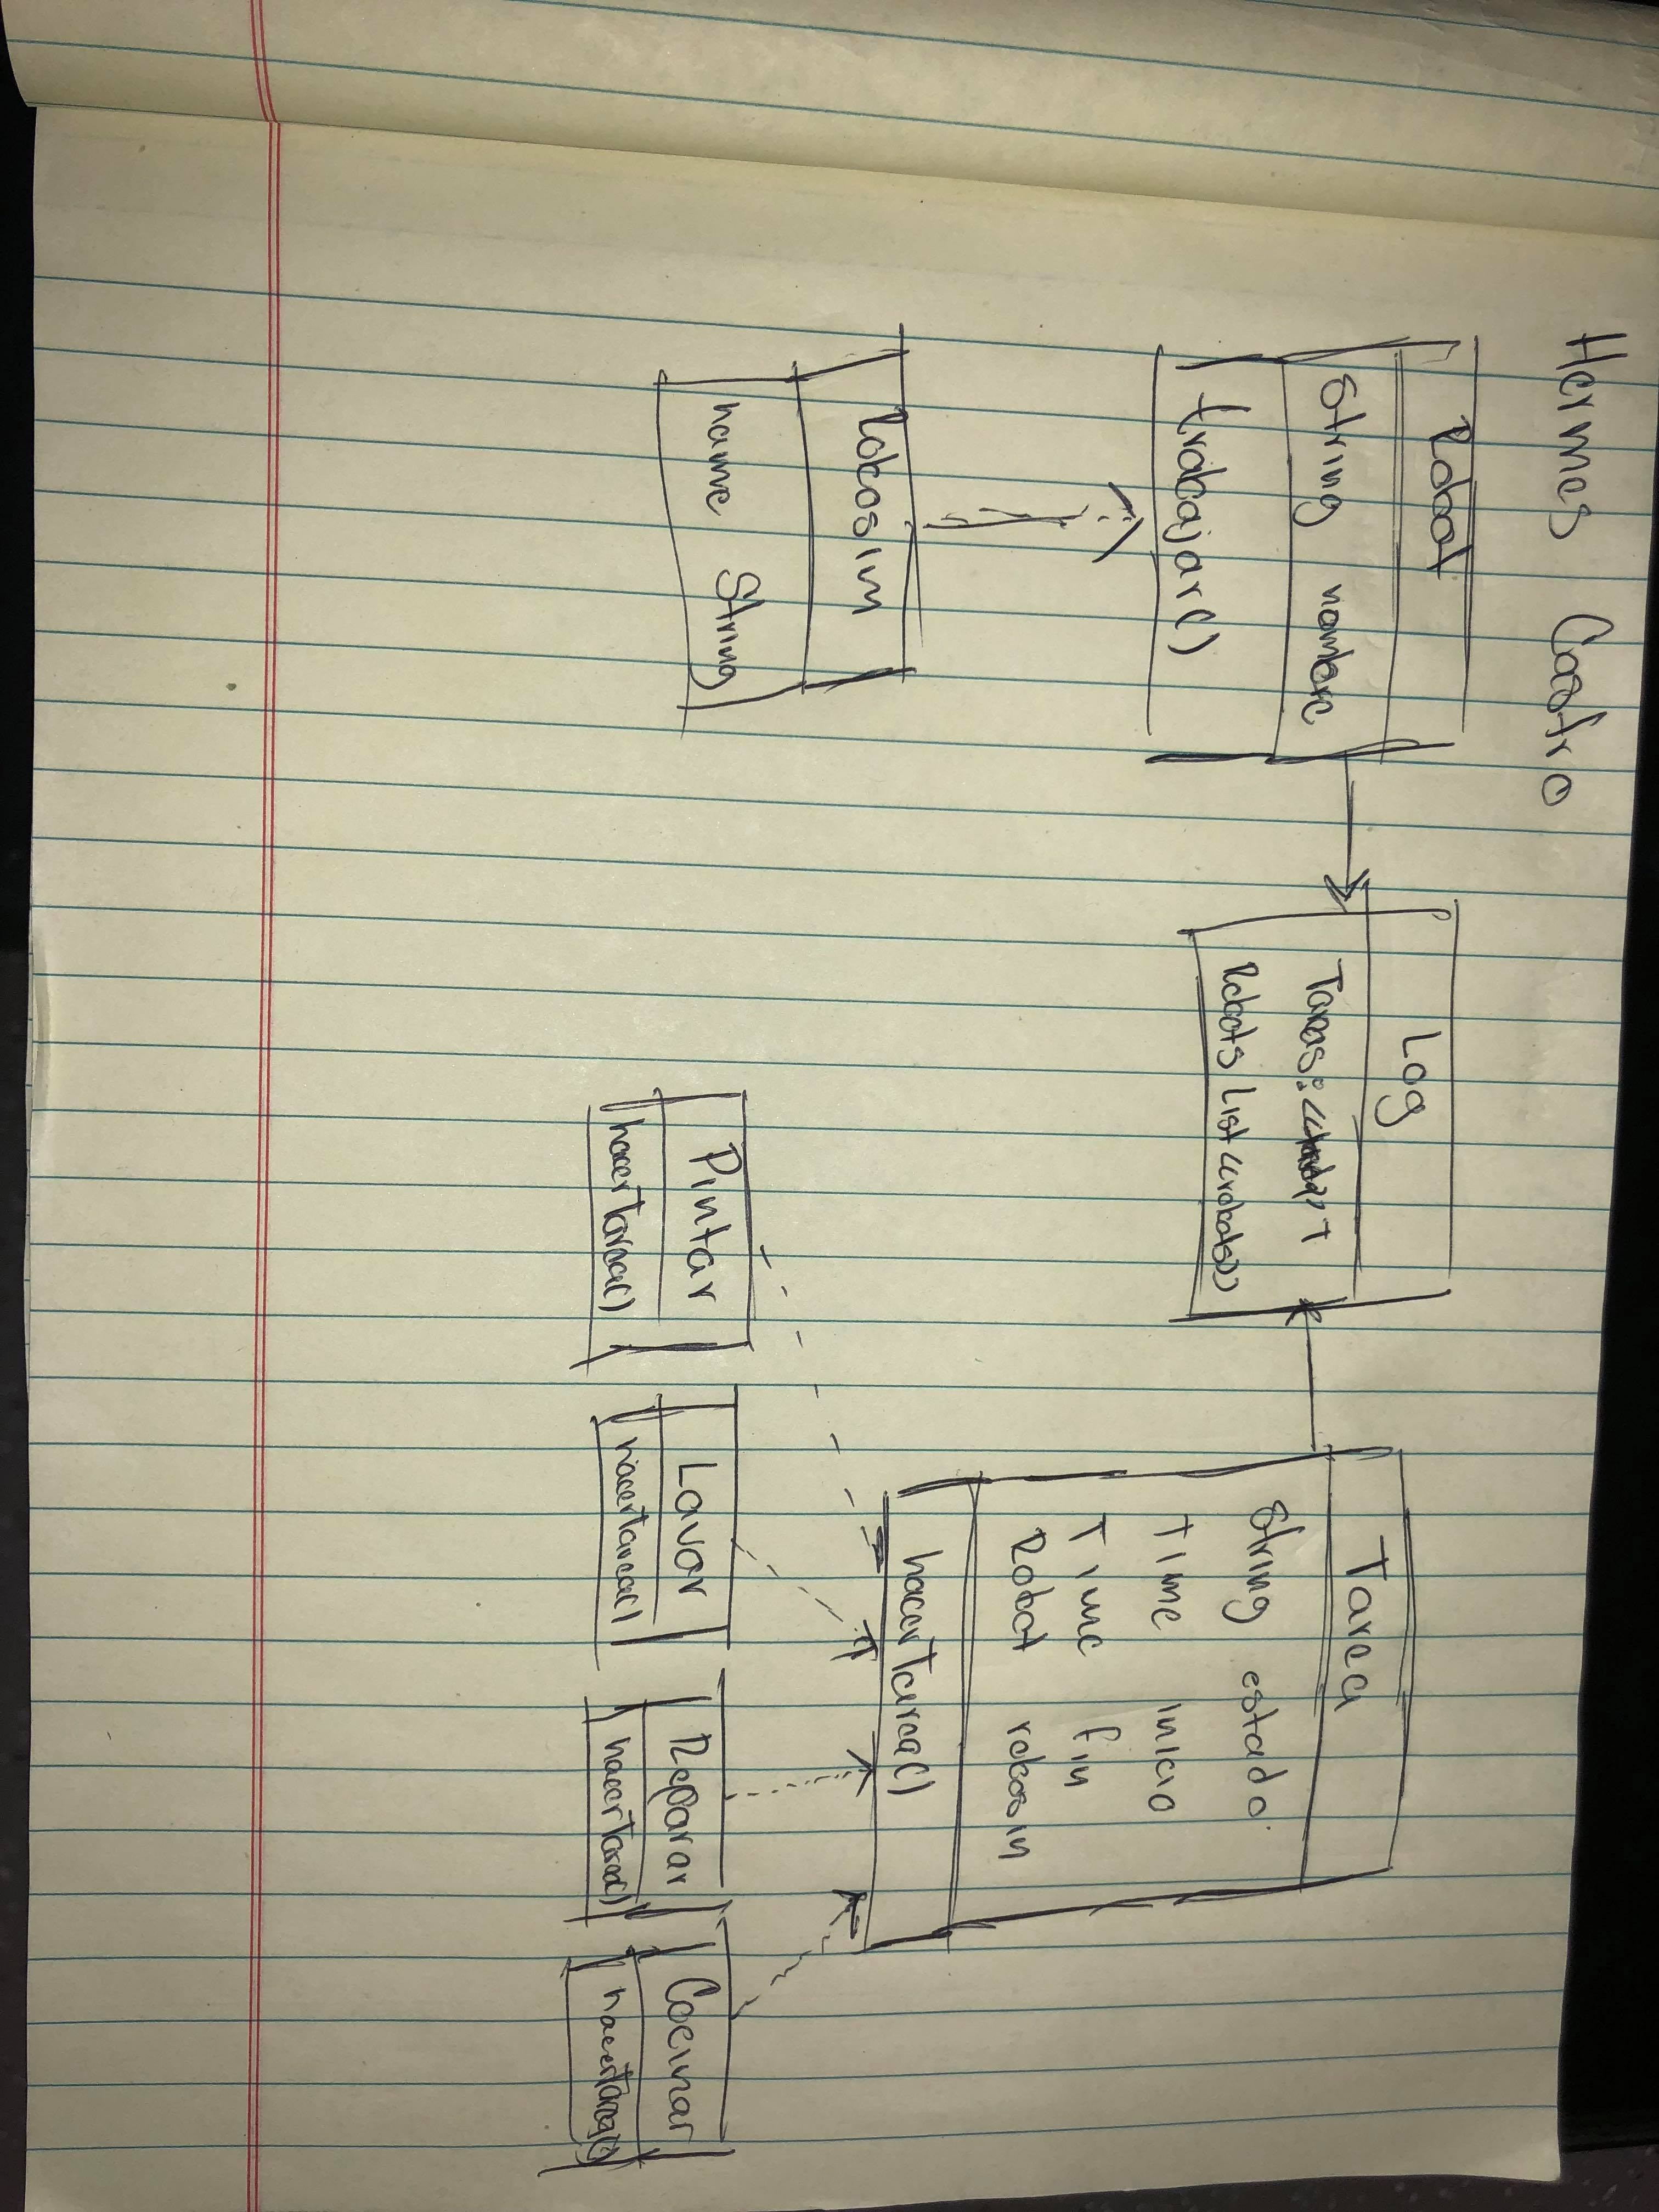 Hermes Castro
Robot
String nombre
trabajar()
Robosim
name String
Log
Tareas:
Robots List <<robots>>
Tarea
String estado
Time inicio
Time fin
Robot robosin
hacerTarea()
Pintar
hacerTarea()
Lavar
hacerTarea()
Reparar
hacerTarea()
Cocinar
hacerTarea()